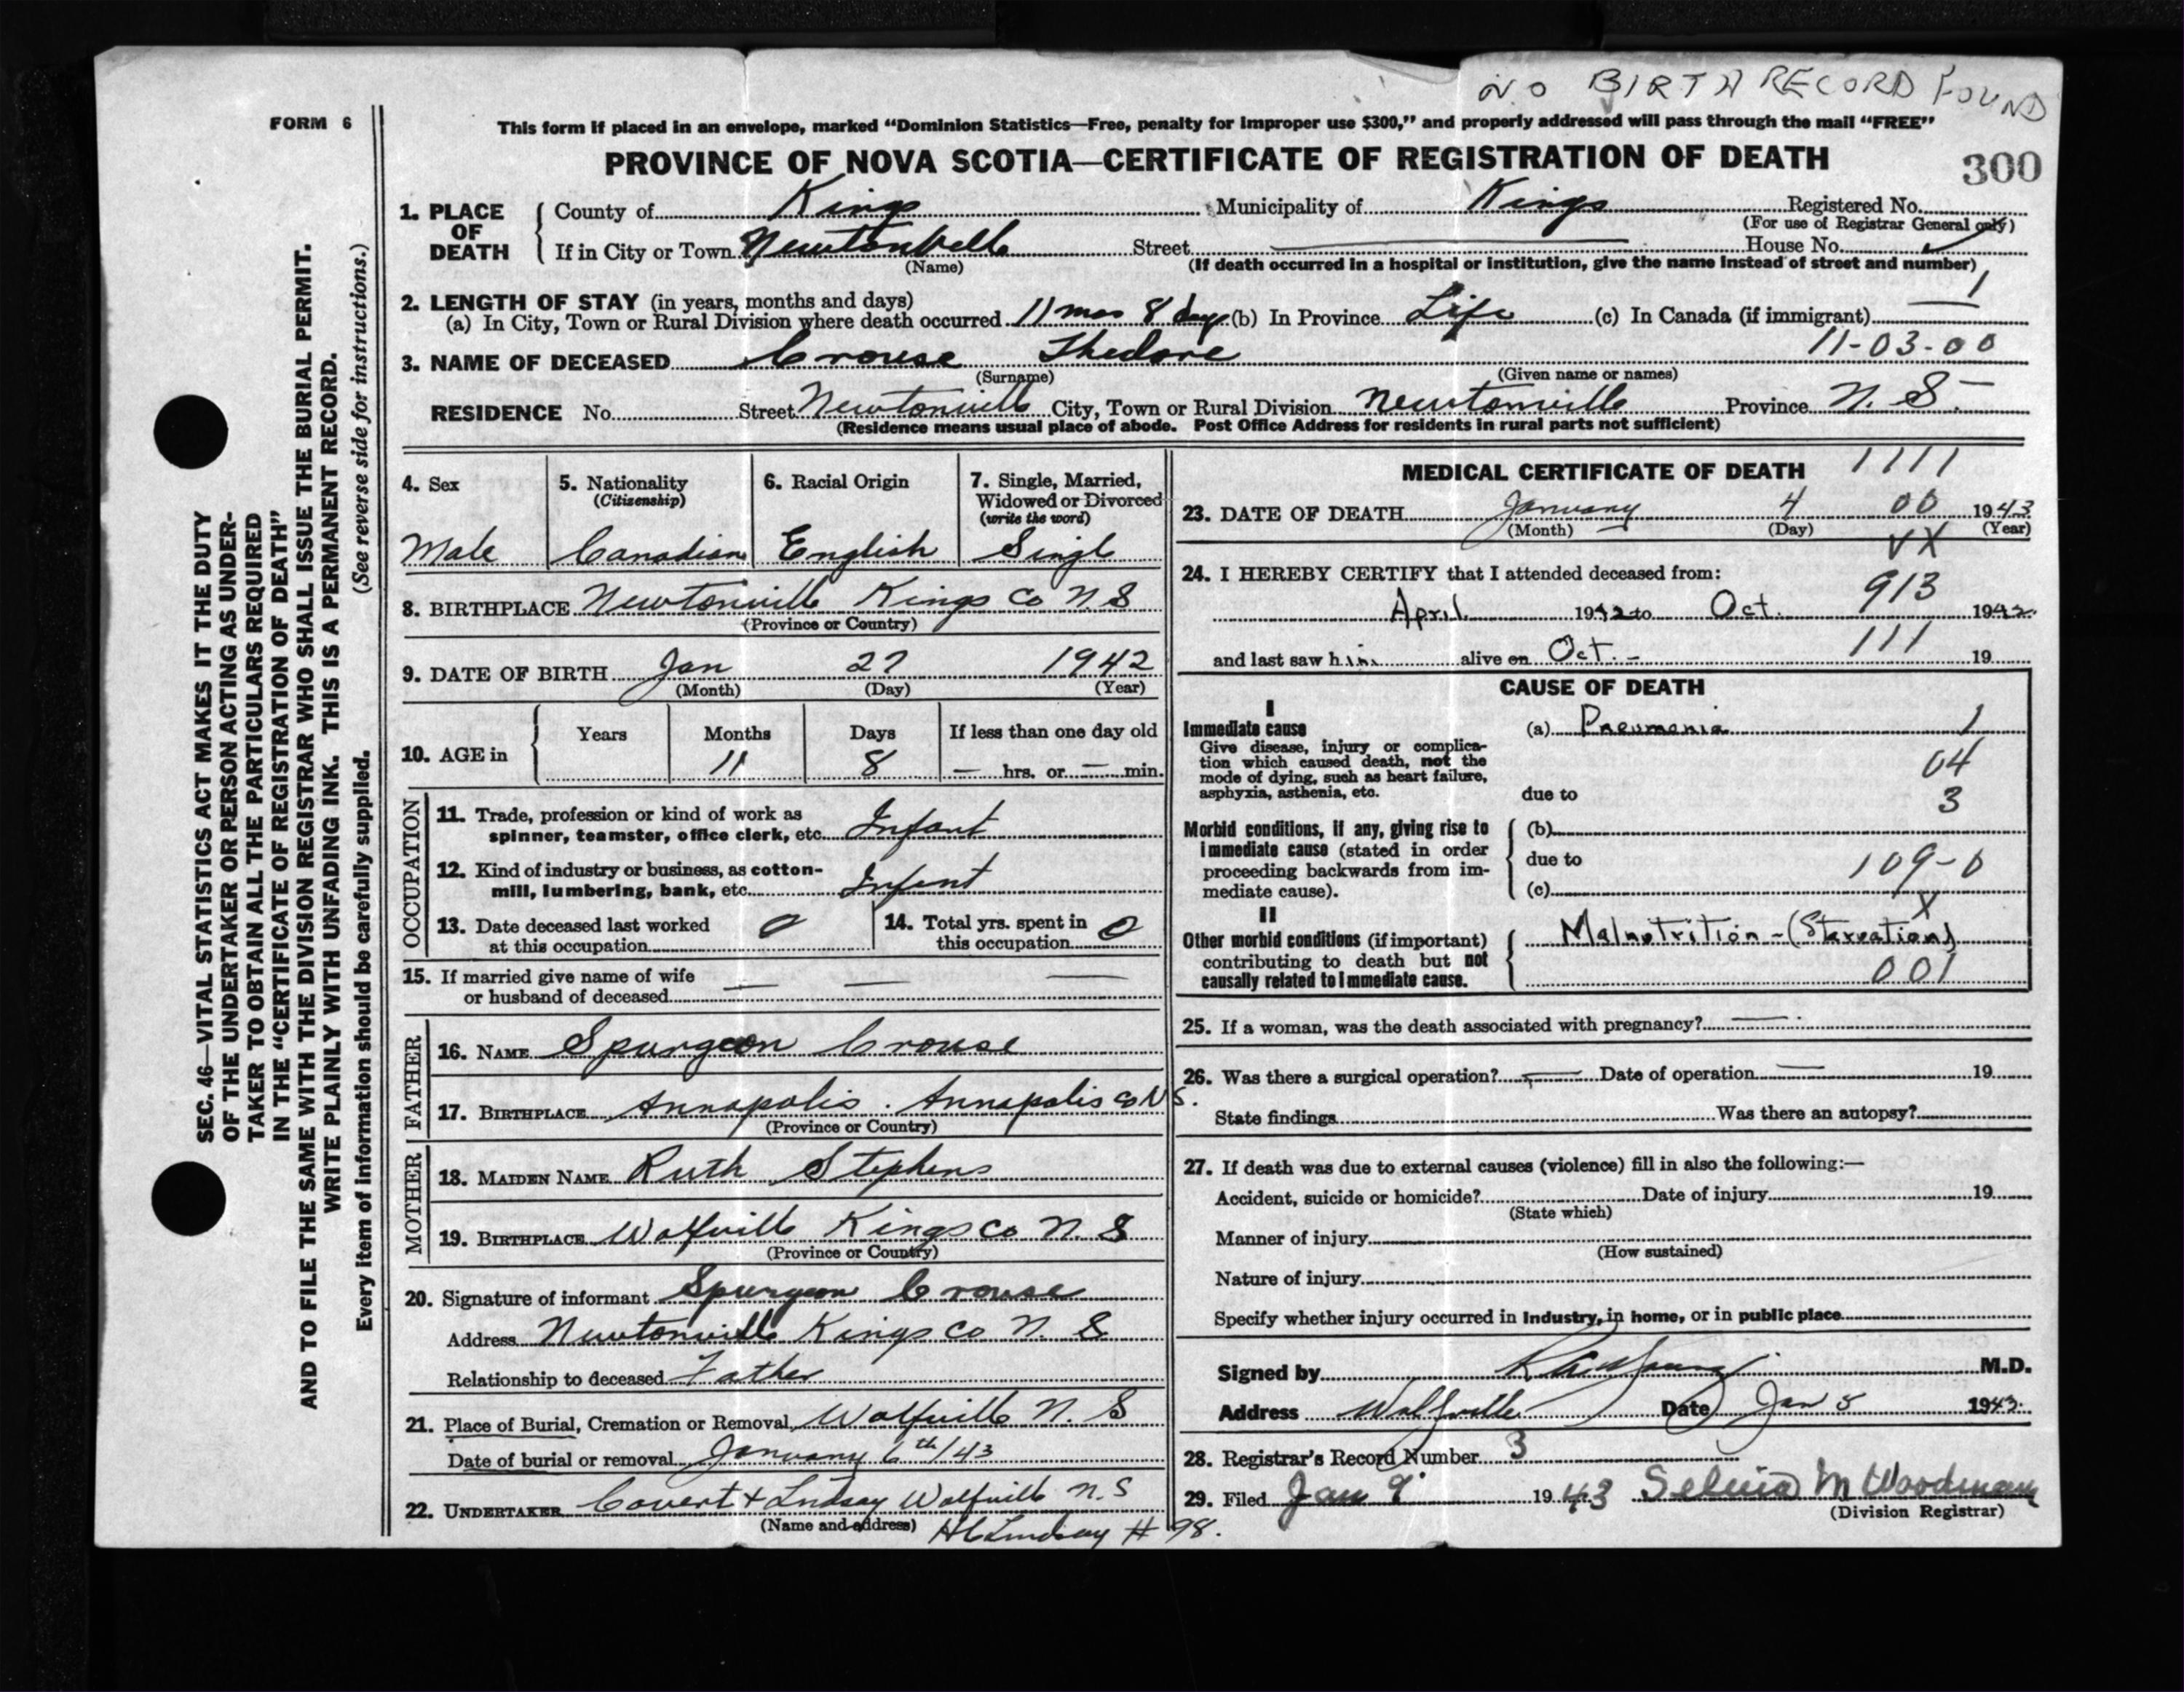 NO BIRTH RECORD FOUND
FORM 6
This form if placed in an envelope, marked “Dominion Statistics—Free, penalty for improper use $300,” and properly addressed will pass through the mail “FREE”
PROVINCE OF NOVA SCOTIA—CERTIFICATE OF REGISTRATION OF DEATH
300
1. PLACE OF DEATH
County of Kings Municipality of Kings Registered No.
(For use of Registrar General only)
If in City or Town Newtonville Street House No.
(Name) (If death occurred in a hospital or institution, give the name instead of street and number)
2. LENGTH OF STAY (in years, months and days) 1
(a) In City, Town or Rural Division where death occurred 11 mos 8 days (b) In Province Life (c) In Canada (if immigrant)
11-03-00
3. NAME OF DECEASED Crouse Thedore
(Surname) (Given name or names)
RESIDENCE No. Street Newtonville City, Town or Rural Division Newtonville Province N. S.
(Residence means usual place of abode. Post Office Address for residents in rural parts not sufficient)
4. Sex
Male
5. Nationality
(Citizenship)
Canadian
6. Racial Origin
English
7. Single, Married,
Widowed or Divorced
(write the word)
Singl
8. BIRTHPLACE Newtonville Kings Co N. S
(Province or Country)
9. DATE OF BIRTH Jan 27 1942
(Month) (Day) (Year)
10. AGE in
Years Months Days If less than one day old
11 8 — hrs. or — min.
OCCUPATION
11. Trade, profession or kind of work as
spinner, teamster, office clerk, etc. Infant
12. Kind of industry or business, as cotton-
mill, lumbering, bank, etc. Infant
13. Date deceased last worked
at this occupation 0
14. Total yrs. spent in
this occupation 0
15. If married give name of wife
or husband of deceased — — —
FATHER
16. NAME Spurgeon Crouse
17. BIRTHPLACE Annapolis. Annapolis Co N S.
(Province or Country)
MOTHER
18. MAIDEN NAME Ruth Stephens
19. BIRTHPLACE Wolfville Kings Co N. S
(Province or Country)
20. Signature of informant Spurgeon Crouse
Address Newtonville Kings Co N. S
Relationship to deceased Father
21. Place of Burial, Cremation or Removal Wolfville N. S
Date of burial or removal January 6th/43
22. UNDERTAKER Covert & Lindsay Wolfville N. S
(Name and address) H C Lindsay # 98.
MEDICAL CERTIFICATE OF DEATH 1111
23. DATE OF DEATH January 4 00 1943
(Month) (Day) (Year)
VX
24. I HEREBY CERTIFY that I attended deceased from:
913
April 1942 to Oct. 1942
and last saw him alive on Oct. - 111 19
CAUSE OF DEATH
I
Immediate cause
Give disease, injury or complica-
tion which caused death, not the
mode of dying, such as heart failure,
asphyxia, asthenia, etc.
(a) Pneumonia 1
04
due to
3
Morbid conditions, if any, giving rise to
immediate cause (stated in order
proceeding backwards from im-
mediate cause).
(b)
due to 109-0
(c)
X
II
Other morbid conditions (if important)
contributing to death but not
causally related to immediate cause.
Malnutrition - (Starvation)
001
25. If a woman, was the death associated with pregnancy? —
26. Was there a surgical operation? — Date of operation — 19
State findings Was there an autopsy?
27. If death was due to external causes (violence) fill in also the following:—
Accident, suicide or homicide? Date of injury 19
(State which)
Manner of injury
(How sustained)
Nature of injury
Specify whether injury occurred in Industry, in home, or in public place
Signed by M.D.
Address Wolfville Date Jan 5 1943.
28. Registrar's Record Number 3
29. Filed Jan 9 1943 M Woodman
(Division Registrar)
SEC. 46—VITAL STATISTICS ACT MAKES IT THE DUTY
OF THE UNDERTAKER OR PERSON ACTING AS UNDER-
TAKER TO OBTAIN ALL THE PARTICULARS REQUIRED
IN THE “CERTIFICATE OF REGISTRATION OF DEATH”
AND TO FILE THE SAME WITH THE DIVISION REGISTRAR WHO SHALL ISSUE THE BURIAL PERMIT.
WRITE PLAINLY WITH UNFADING INK. THIS IS A PERMANENT RECORD.
Every item of information should be carefully supplied. (See reverse side for instructions.)